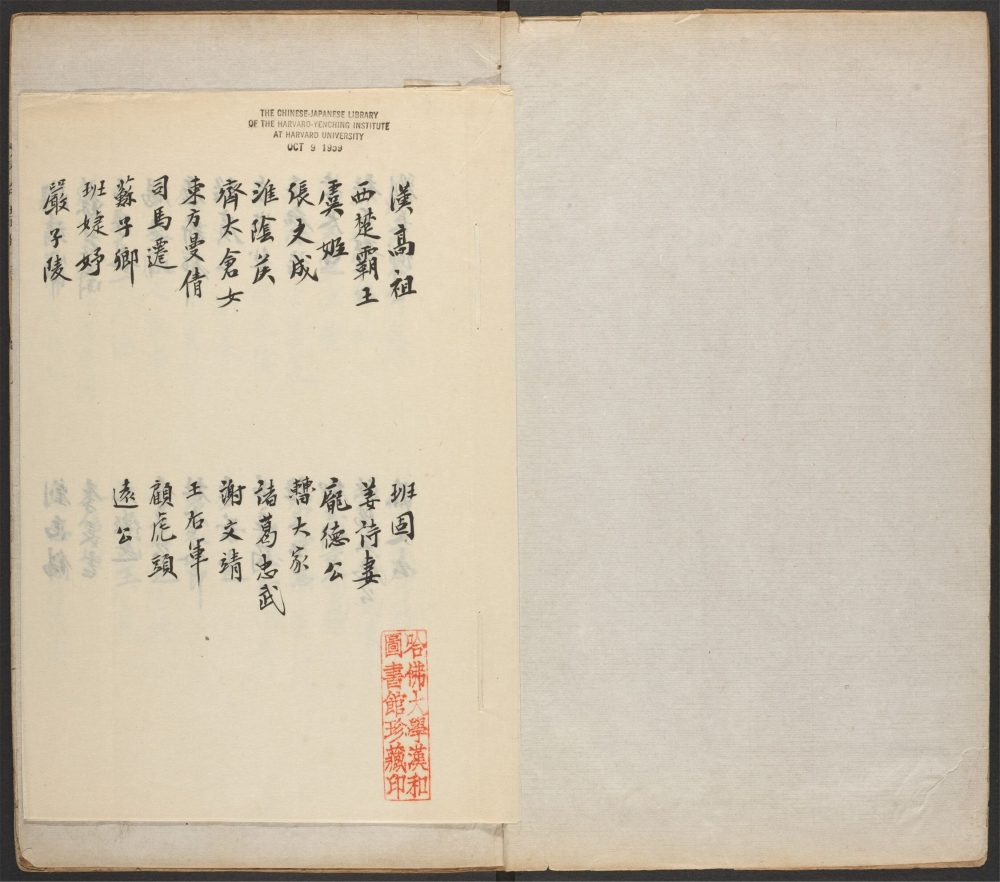 THE CHINESE-JAPANESE LIBRARY
OF THE HARVARD-YENCHING INSTITUTE
AT HARVARD UNIVERSITY
OCT 9 1939
漢高祖
西楚霸王
虞姬
張文成
淮陰侯
齊太倉女
東方曼倩
司馬遷
蘇子卿
班婕妤
嚴子陵
班固
姜詩妻
龐德公
曹大家
諸葛忠武
謝文靖
王右軍
顧虎頭
遠公
哈佛大學漢和
圖書館珍藏印